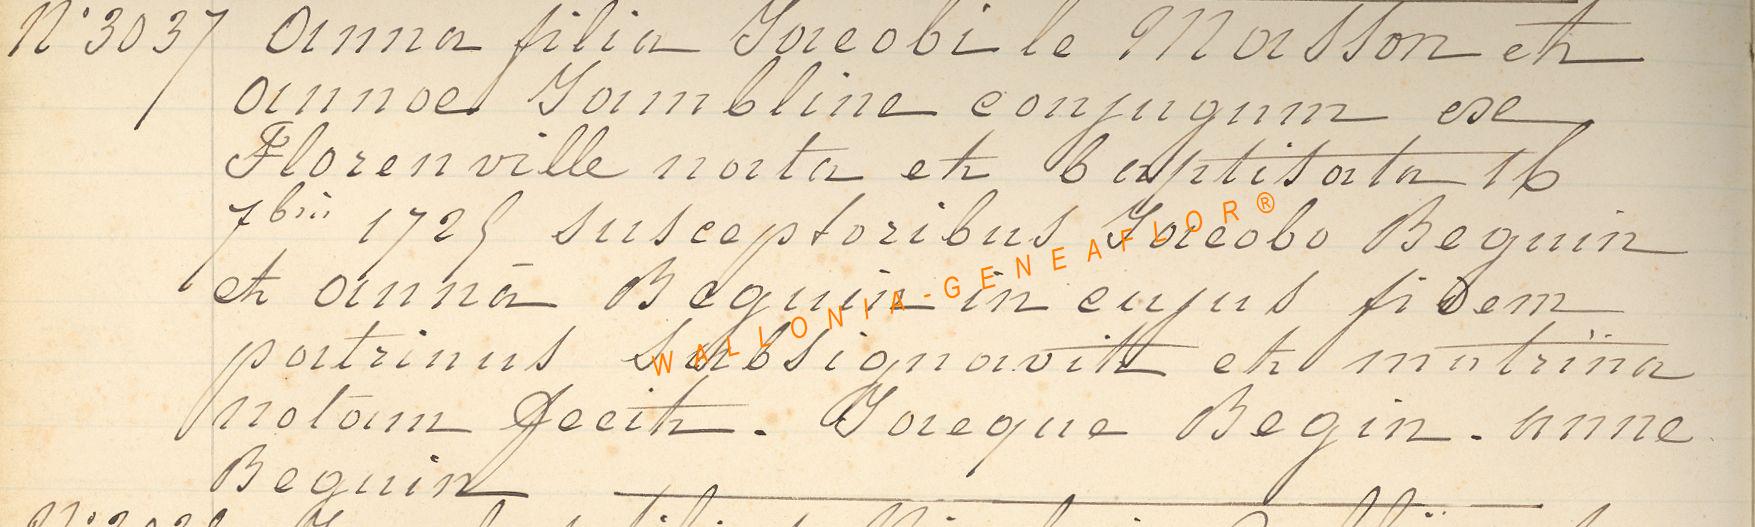 N° 3037 Anna filia Jacobi le Masson et
annae Jambline conjugum ex
Florenville nata et baptisata 16
7bris susceptoribus Jacobo Beguin
et annā Beguin in cujus fidem
patrinus subsignavit et matrina
notam fecit. Jacque Begin. anne
Beguin
WALLONIA-GENEAFLOR®